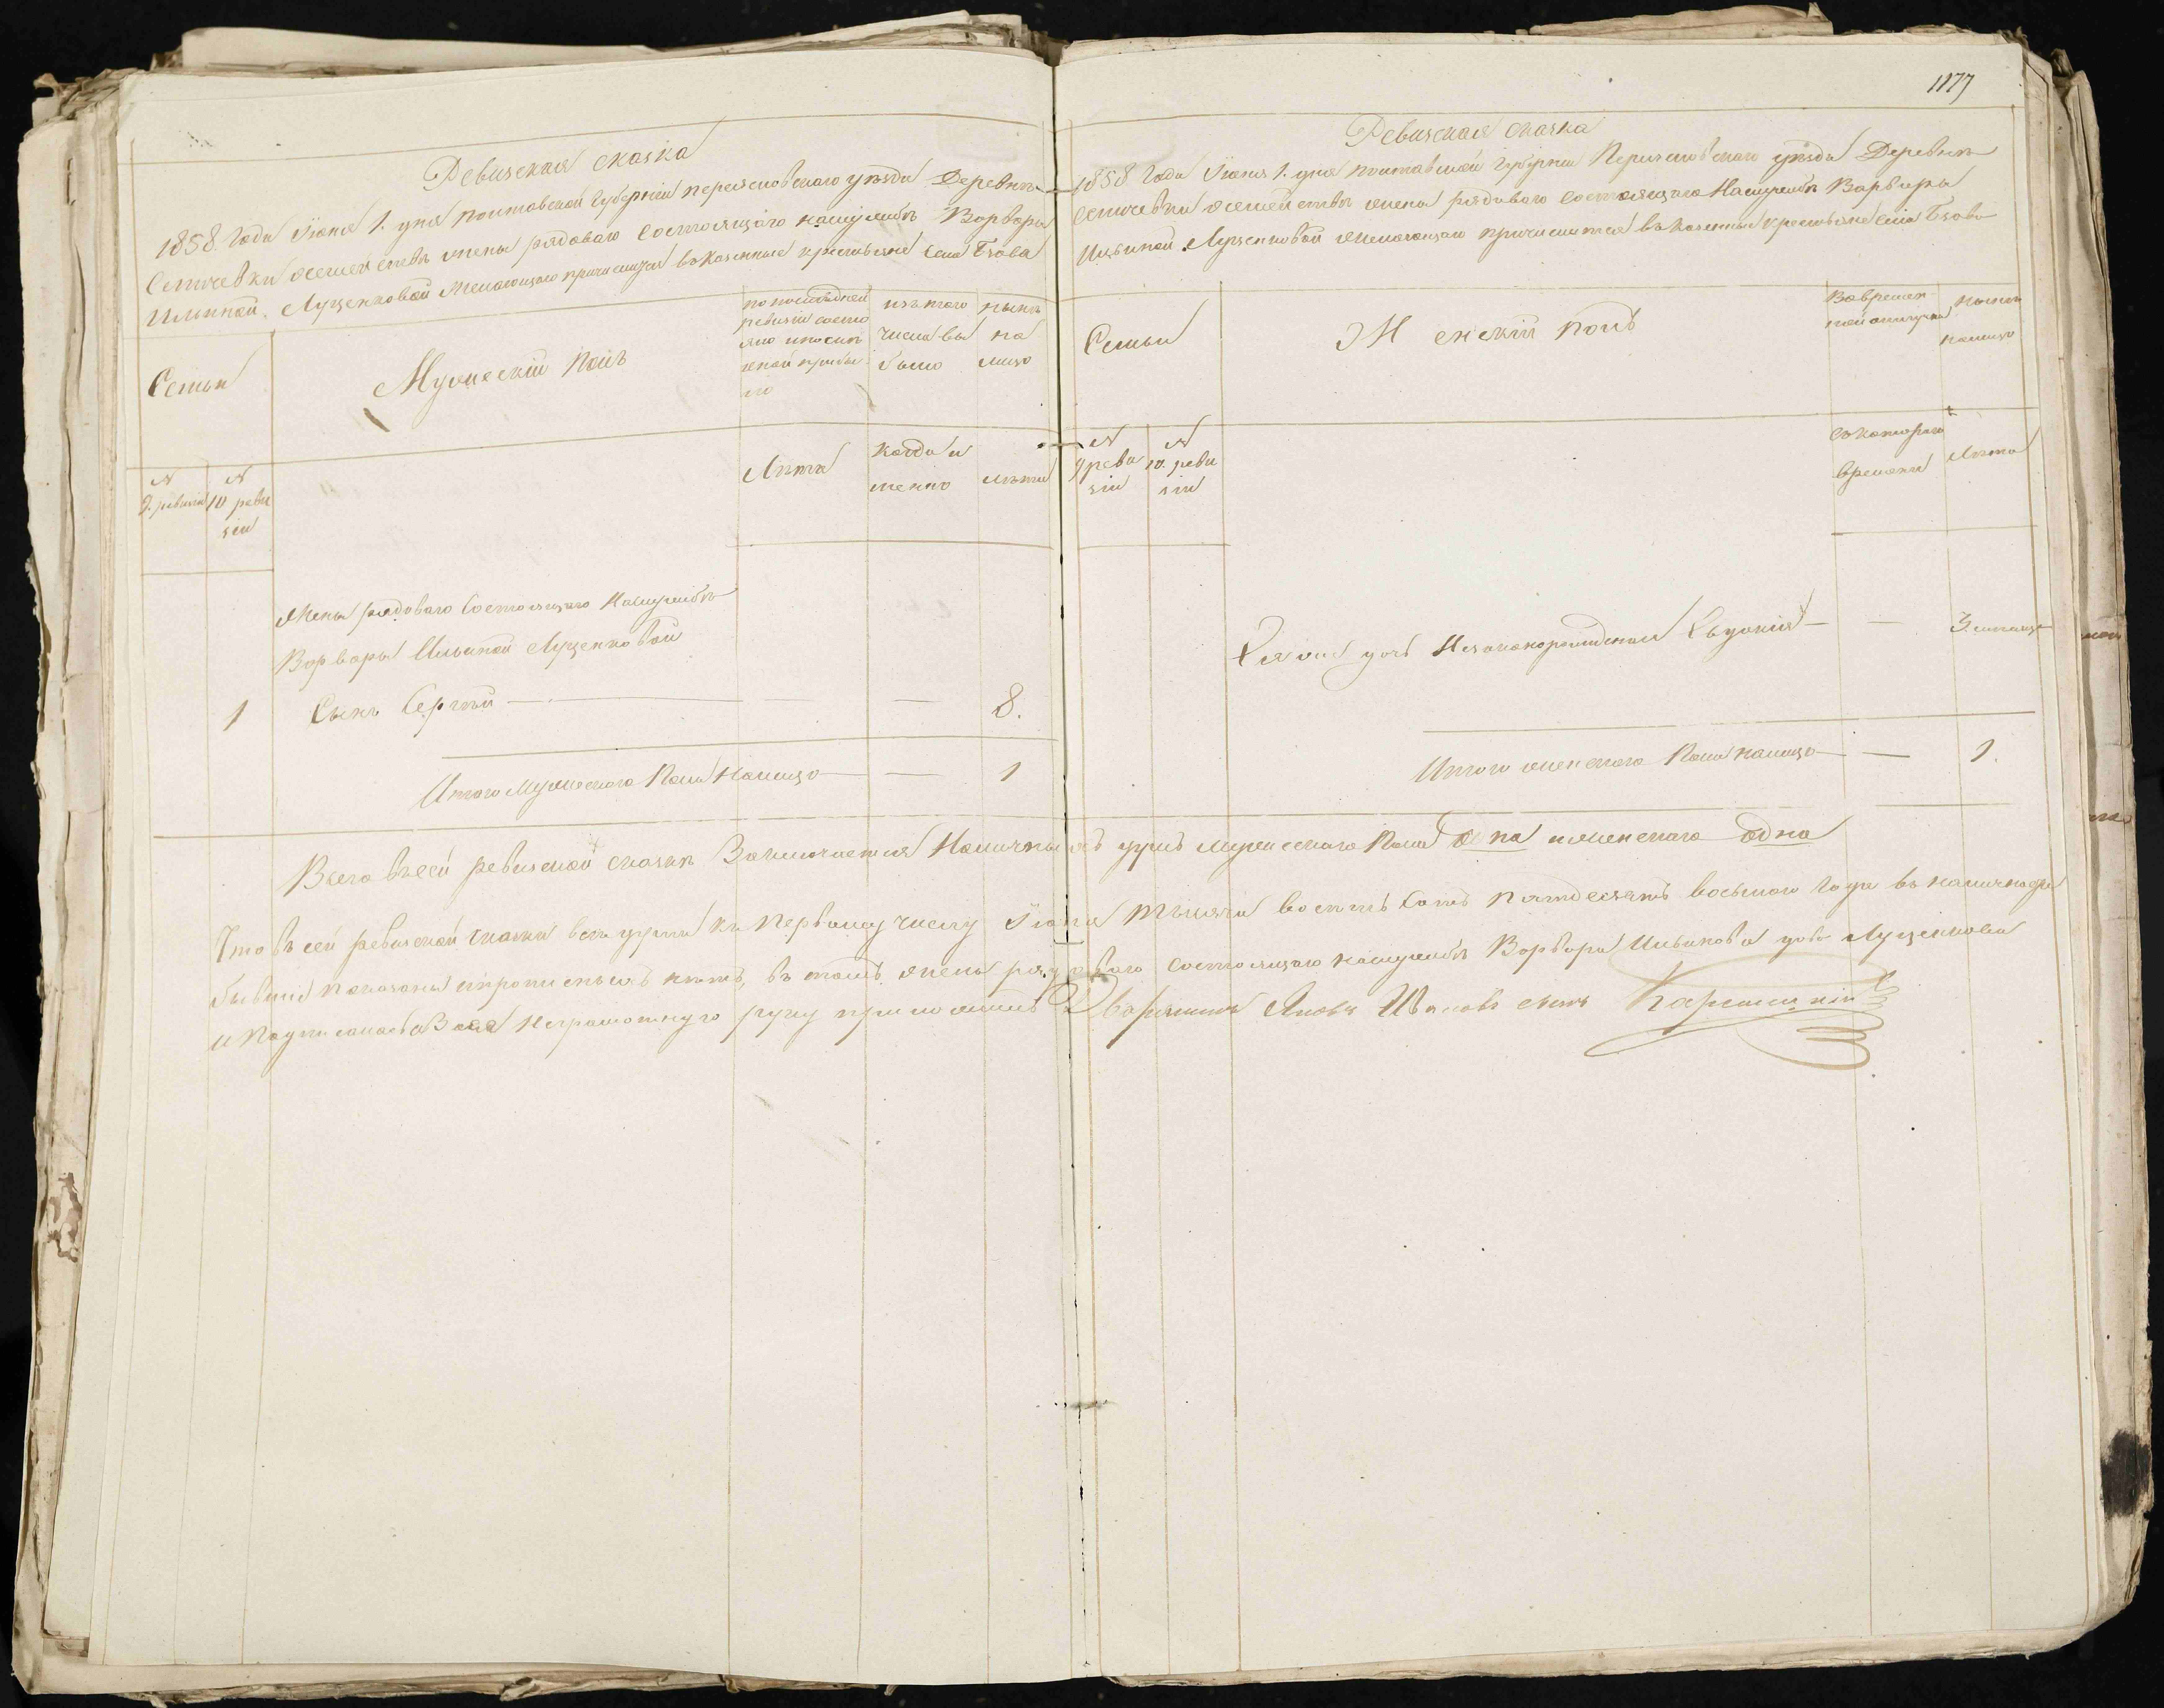 Ревизская сказка
1858 Года Іюня 1. дня Полтавской Губерніи переясловского уезда Деревни
Семействе жены рядоваго Состоящаго наслужбѣ Ворвары
Илиной Луценковой Желающаго причислится вказенные крестьяне Села
Семьи
Мужескій полъ
по последней
ревизіи состо
яло и после
оной прибы
ло
изъ того
числа вы
было
нынѣ
на
лицо
№
9. ревизіи
№
10 реви
зіи
Лѣта
Когда и
менно
Лѣта
Жены рядоваго Состоящаго наслужбѣ
Ворвары Илиной Луценковой
1 Сынъ Сергѣй — — 8.
Итого Мужескаго Пола Налицо — — 1
1177
Ревизская сказка
1858 Года Іюня 1. дня полтавской Губерніи Переясловскаго уезда Деревни
жены рядоваго состоящаго Наслужбѣ Варвары
Ильиной Луценковой желающаго причислится вказенные крестьяне Села
Семьи
Женскій полъ
Вовремен
ной отлучке
нынѣ
налицо
№
9 реви
зіи
№
10. реви
зіи
Скотораго
времени
Лѣта
Ея же дочь Незаконорожденная Евдокія — —
Итого женскаго Пола налицо — — 1.
Всего всей ревизской сказки Заключается Наличныхъ душъ мужескаго Пола одна иженскаго одна
Что всей ревизской сказки все души кпервому числу Іюня тысяча восемъ Сотъ пятдесятъ восьмого Года вналичности
бывшіе показаны и прописныхъ нетъ, втомъ жена рядоваго состоящаго наслужбѣ Ворвара Ильинова дочь Луценкова
и Подписалась а Заея Неграмотную руку приложилъ Дворянинъ Яковъ Ивановъ сынъ